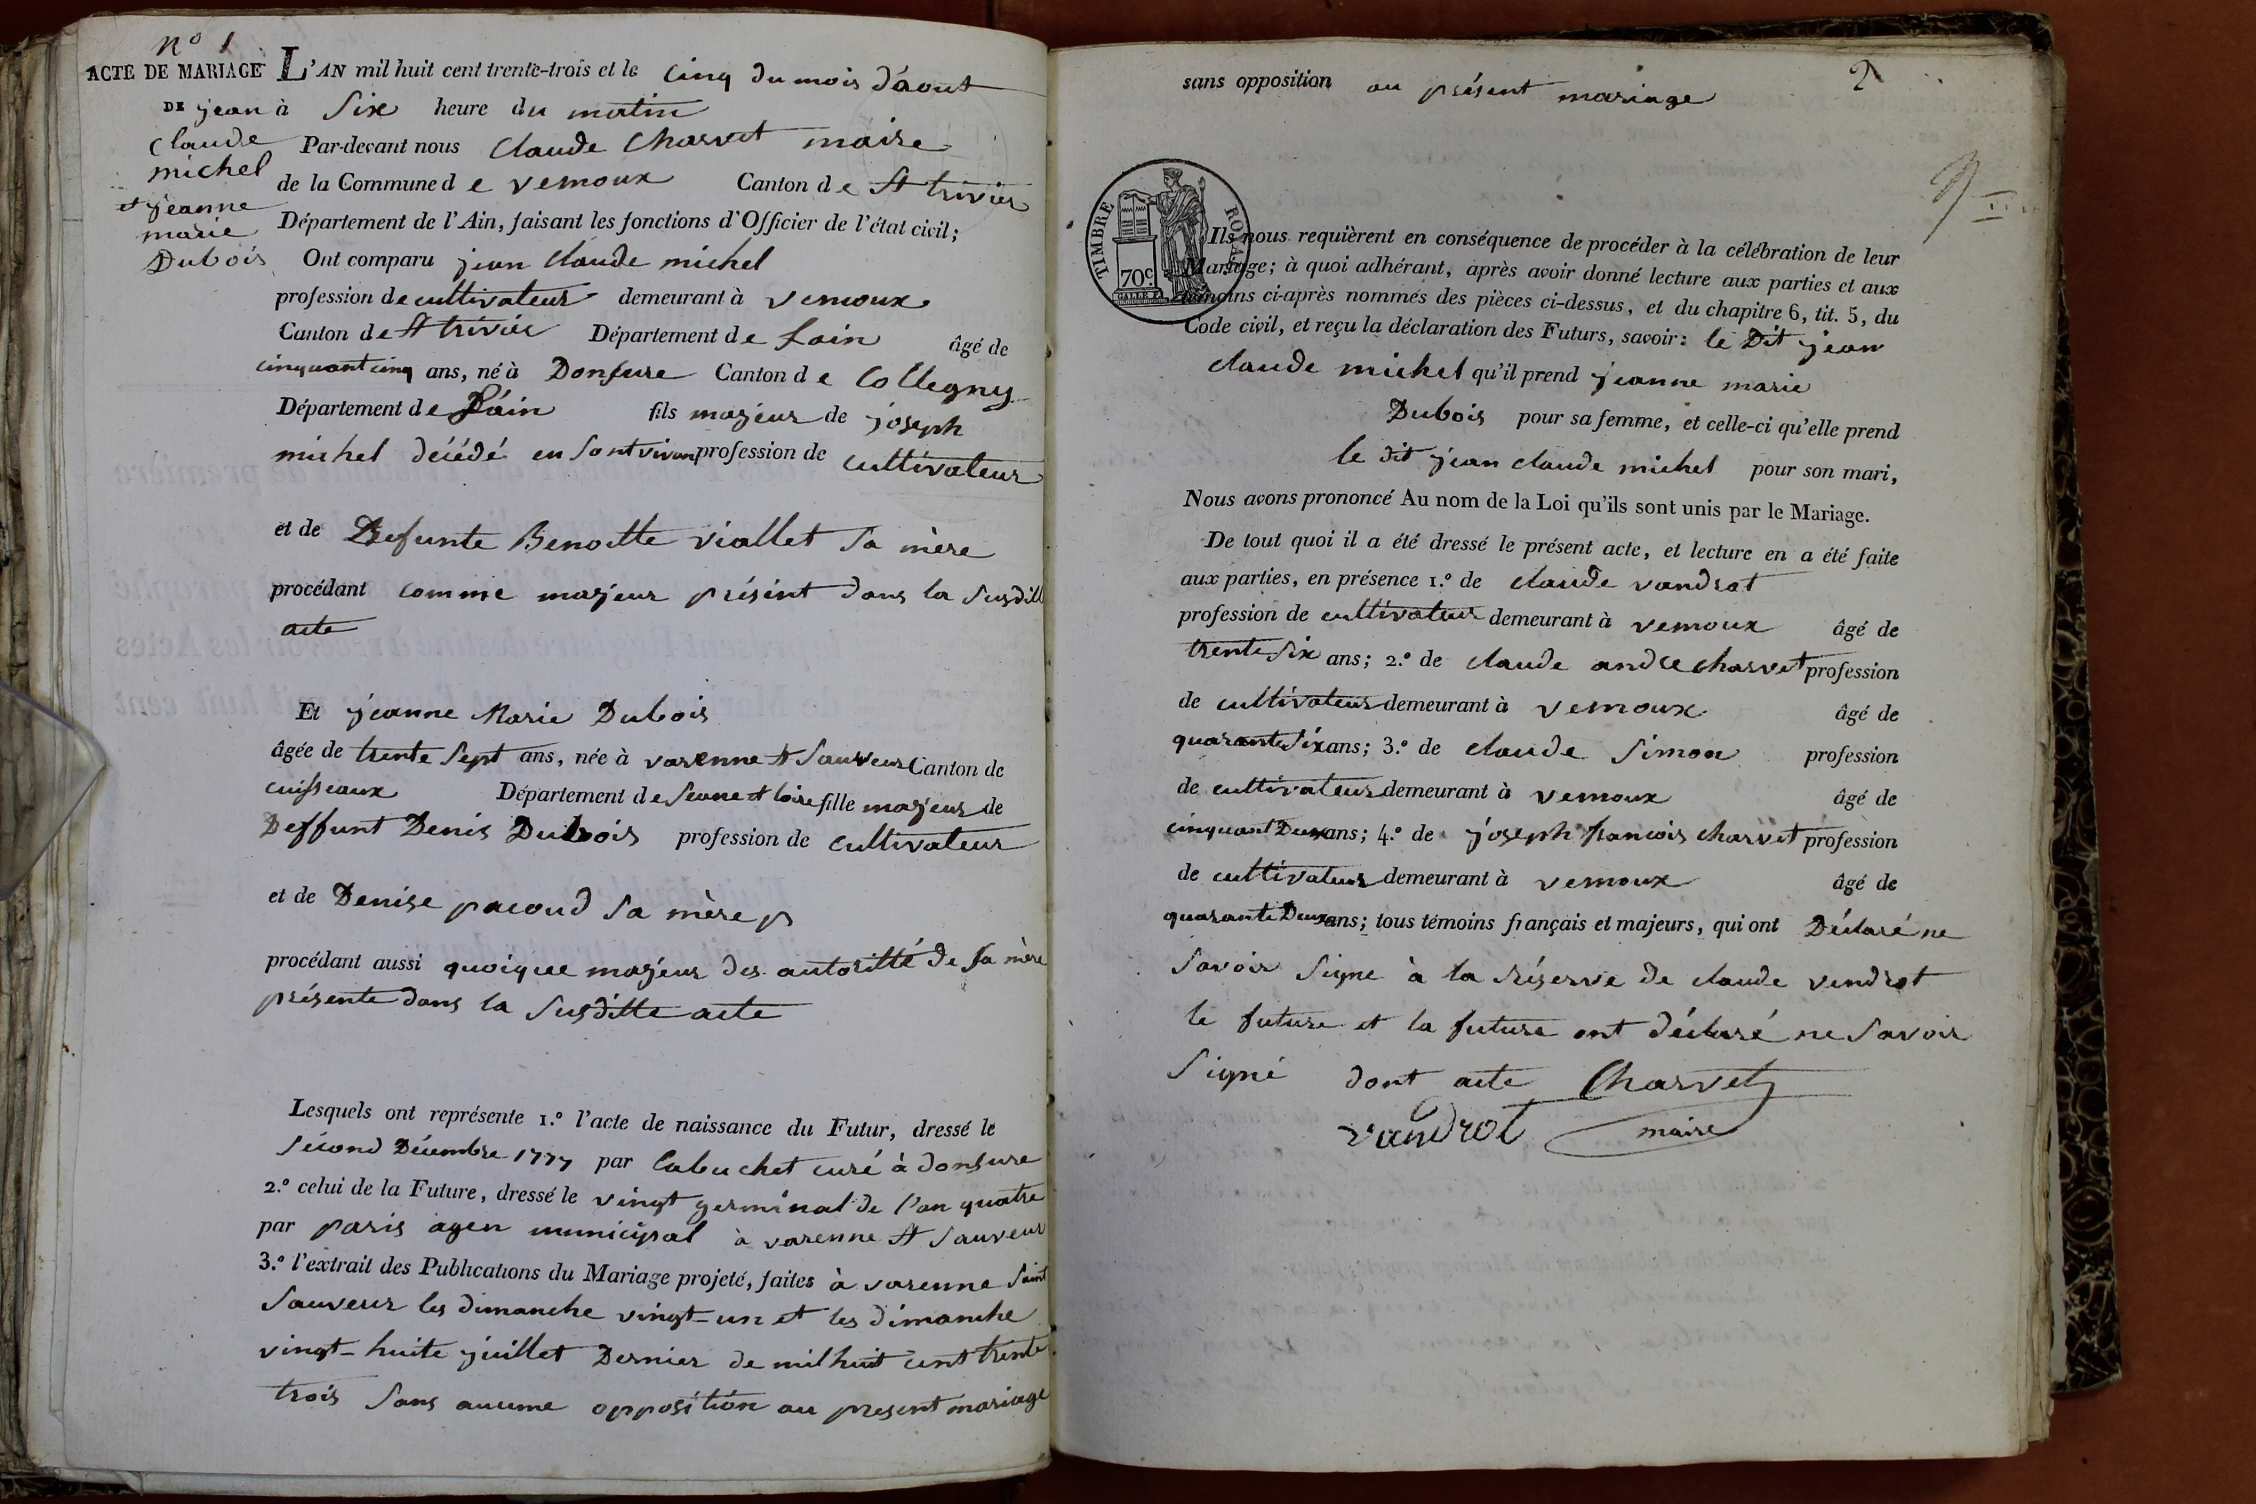 nº 1
ACTE DE MARIAGE
DE jean
claude
michel
et jeanne
marie
Dubois
L'AN mil huit cent trente-trois et le cinq du mois d'aout
à Six heure du matin
Par-devant nous Claude Charvet maire
de la Commune d e vernoux Canton d e St trivier
Département de l'Ain, faisant les fonctions d'Officier de l'état civil;
Ont comparu jean Claude michel
profession de cultivateur demeurant à vernoux
Canton de St trivier Département de Lain âgé de
cinquant cinq ans, né à Donsure Canton d e Collegny
Département de Láin fils majeur de joseph
michel décédé en Sont vivant profession de cultivateur
et de Defunte Benoitte viallet Sa mère
procédant comme majeur présent dans la Susditte
acte
Et jeanne Marie Dubois
âgée de trente Sept ans, née à varenne St Sauveur Canton de
cuisseaux Département de Seaone et loire fille majeur de
Deffunt Denis Dubois profession de cultivateur
et de Denise pacoud Sa mère p
procédant aussi quoique majeur des autoritté de Sa mère
présente dans la Susditte acte
Lesquels ont représente 1.º l'acte de naissance du Futur, dressé le
Sécond Décembre 1777 par Cabuchet curé à donsure
2.º celui de la Future, dressé le vingt germinal de l'an quatre
par paris agen municipal à varenne St Sauveur
3.º l'extrait des Publications du Mariage projeté, faites à varenne Saint
Sauveur les dimanche vingt-un et les dimanche
vingt-huite juillet Dernier de mil huit cent trente
trois Sans aucune opposition au present mariage
2
sans opposition au présent mariage
TIMBRE ROYAL
70 c.
Ils nous requièrent en conséquence de procéder à la célébration de leur
Mariage; à quoi adhérant, après avoir donné lecture aux parties et aux
témoins ci-après nommés des pièces ci-dessus, et du chapitre 6, tit. 5, du
Code civil, et reçu la déclaration des Futurs, savoir: le Dit jean
claude michel qu'il prend jeanne marie
Dubois pour sa femme, et celle-ci qu'elle prend
le dit jean claude michel pour son mari,
Nous avons prononcé Au nom de la Loi qu'ils sont unis par le Mariage.
De tout quoi il a été dressé le présent acte, et lecture en a été faite
aux parties, en présence 1.º de claude vandrot
profession de cultivateur demeurant à vernoux âgé de
trente Six ans; 2.º de claude andre charvet profession
de cultivateur demeurant à vernoux âgé de
quarante Six ans; 3.º de claude Simon profession
de cultivateur demeurant à vernoux âgé de
cinquant Deux ans; 4.º de joseph francois charvet profession
de cultivateur demeurant à vernoux âgé de
quarante Deux ans; tous témoins français et majeurs, qui ont Déclaré ne
Savoir Signe à la réserve de claude vendrot
le future et la future ont déclaré ne Savoir
Signé dont acte Charvet
vandrot maire